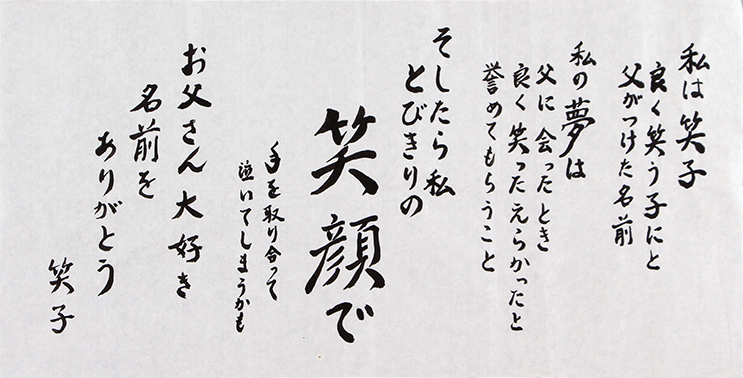 私は笑子
良く笑う子にと
父がつけた名前
私の夢は
父に会ったとき
良く笑ったえらかったと
誉めてもらうこと
そしたら私
とびきりの
笑顔で
手を取り合って
泣いてしまうかも
お父さん大好き
名前を
ありがとう
笑子